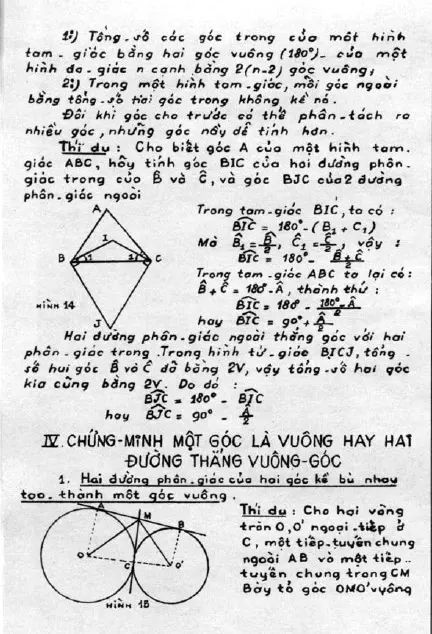 1º) Tổng-số các góc trong của một hình
tam-giác bằng hai góc vuông (180º)- của một
hình đa-giác n cạnh bằng 2(n-2) góc vuông;
2º) Trong một hình tam-giác, mỗi góc ngoài
bằng tổng-số hai góc trong không kề nó.
Đôi khi góc cho trước có thể phân-tách ra
nhiều góc, những góc nầy dễ tính hơn.
Thí dụ : Cho biết góc A của một hình tam-
giác ABC, hãy tính góc BIC của hai đường phân-
giác trong của B̂ và Ĉ, và góc BJC của 2 đường
phân-giác ngoài
A
I
B
1
1
C
J
HÌNH 14
Trong tam-giác BIC, ta có :
BIC = 180º-(B₁ + C₁)
Mà B̂₁ = B̂/2, Ĉ₁ = Ĉ/2, vậy :
BIC = 180º - (B̂+Ĉ)/2
Trong tam-giác ABC ta lại có:
B̂+Ĉ = 180º-Â, thành thử :
BIC = 180º - (180º-Â)/2
hay BIC = 90º + Â/2
Hai đường phân-giác ngoài thẳng góc với hai
phân-giác trong. Trong hình tứ-giác BICJ, tổng-
số hai góc B̂ và Ĉ đã bằng 2V, vậy tổng-số hai góc
kia cũng bằng 2V. Do đó :
BJC = 180º - BIC
hay BJC = 90º - Â/2
IV. CHỨNG-MINH MỘT GÓC LÀ VUÔNG HAY HAI
ĐƯỜNG THẲNG VUÔNG-GÓC
1. Hai đường phân-giác của hai góc kề bù nhau
tạo-thành một góc vuông.
A
M
B
O
C
O'
HÌNH 15
Thí dụ : Cho hai vòng
tròn O,O' ngoại-tiếp ở
C, một tiếp-tuyến chung
ngoài AB và một tiếp-
tuyến chung trong CM
Bày tỏ góc OMO' vuông